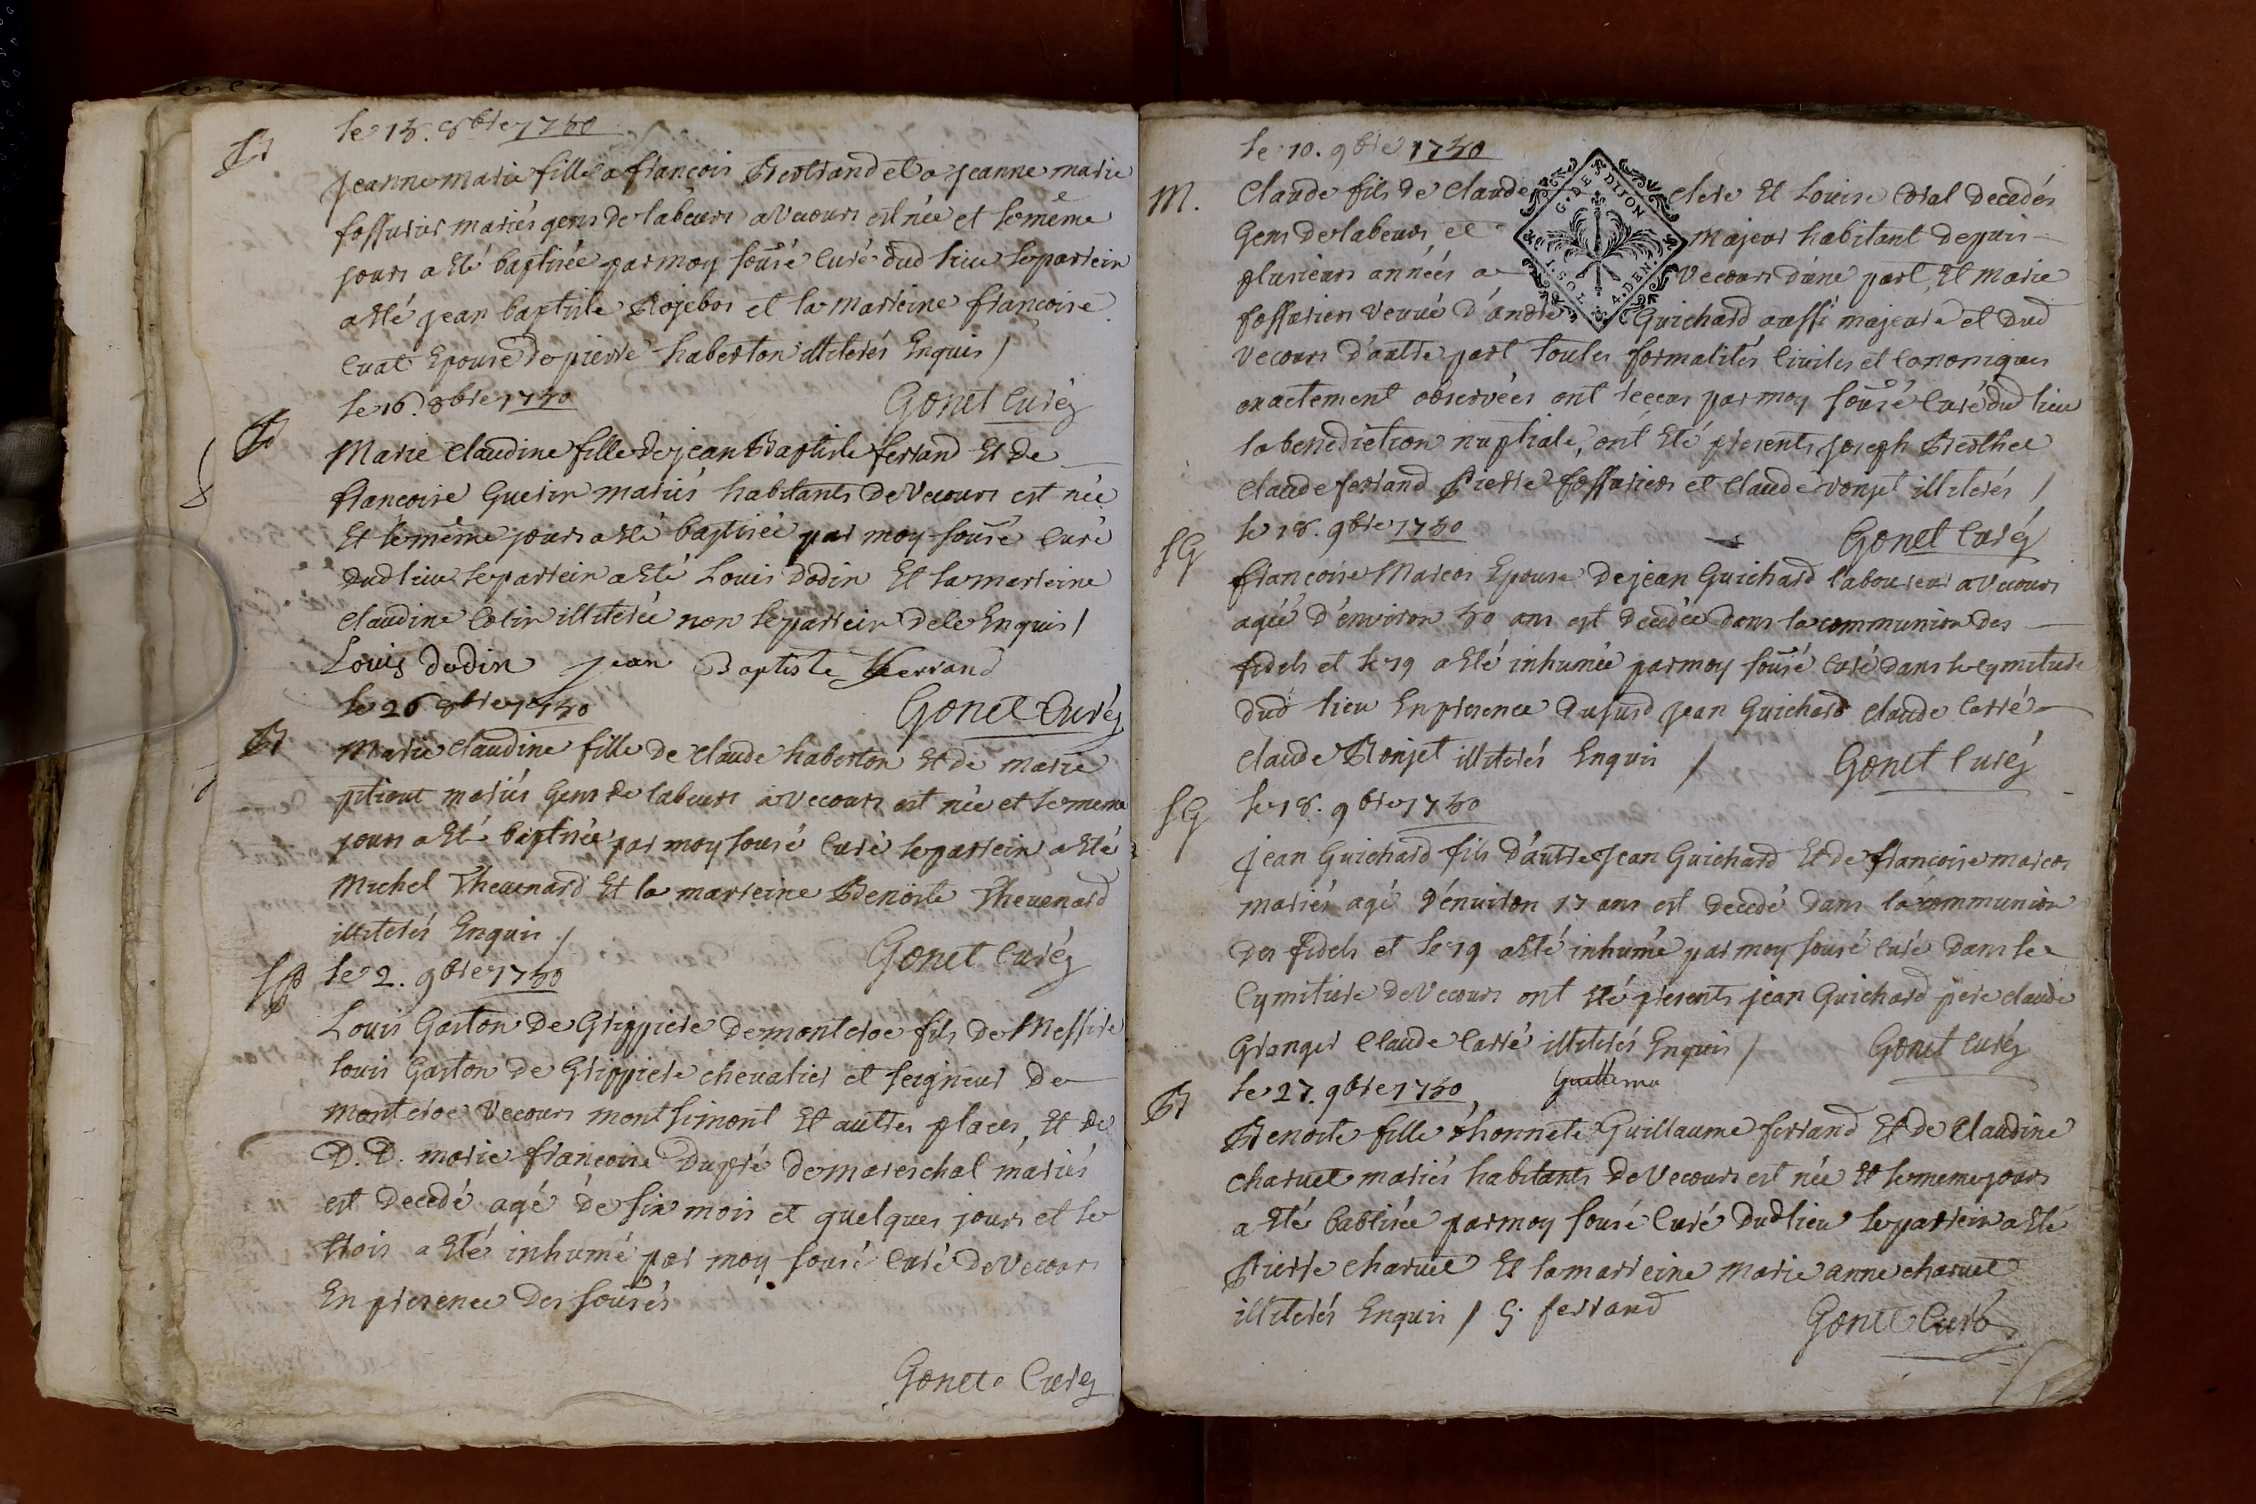 B
le 15. 8bre 1750
jeanne marie fille a françois Bertrand et a jeanne marie
fossurier mariés gens de labeurs a Vecours est née et le même
jours a Eté baptisée par moy sousé Curé dud lieu le parrein
a Eté jean baptiste Rojebor et la marreine françoise
Epouse de pierre haberton illiterés Enquis /
Gonet Curé
le 16. 8bre 1750
B
Marie Claudine fille de jean Baptiste ferrand Et de
françoise Guerin mariés habitants de Vecours est née
Et le même jours a Eté baptisée par moy sousé Curé
dud lieu le parrein a Eté Louis dodin Et la marreine
Claudine Cotin illiterée non le parrein de ce Enquis /
Louis dodin jean Baptiste ferrand
le 26 8bre 1750
Gonet Curé
B
Marie Claudine fille de Claude haberton Et de marie
pitiout mariés Gens de labeurs a Vecours est née et le meme
jours a Eté baptisée par moy sousé Curé le parrein a Eté
Michel Thevenard Et la marreine Benoite Thevenard
illiterés Enquis /
Gonet Curé
le 2. 9bre 1750
Louis Gaston de Grippiere de montcroc fils de Messire
Louis Gaston de Grippiere chevalier et seigneur de
montcroc Vecours montsimont Et autres places, Et de
D. D. marie françoise Dupré de mareschal mariés
est decedé agé de six mois et quelques jours et le
trois a Eté inhumé par moy sousé Curé de Vecours
En presence des sousés
Gonet Curé
le 10. 9bre 1750
M.
Claude fils de Claude Clere Et Louise Coral decedés
Gens de labeurs, et majeur habitant depuis
plusieurs années a Vecours d'une part, Et marie
fossurier veuve d'andré Guichard aussi majeure et dud
Vecours d'autre part toutes formalités Civiles et Canoniques
exactement observées ont receus par moy sousé Curé dud lieu
la benediction nuptiale, ont Eté presents joseph Berthet
Claude ferrand Pierre fossurier et Claude ronjet illiterés /
G. DE DIJON
1. SOL. 4. DEN.
Gonet Curé
le 18. 9bre 1750
SG
françoise Marcor Epouse de jean Guichard laboureur a Vecours
agée d'environ 50 ans est decedée dans la communion des
fidels et le 19 a Eté inhumée par moy sousé Curé dans le cymitiere
dud lieu En presence dususd jean Guichard Claude Carré
Claude Ronjet illiterés Enquis /
Gonet Curé
SG
le 18. 9bre 1750
jean Guichard fils d'autre jean Guichard Et de francoise marcor
mariés agé d'environ 17 ans est decedé dans la communion
des fidels et le 19 a Eté inhumé par moy sousé Curé dans le
Cymitiere de Vecours ont Eté presents jean Guichard pere claude
Granger Claude Carré illiterés Enquis /
Gonet Curé
le 27. 9bre 1750,
B
Benoite fille d'honnete Guillaume ferrand Et de Claudine
charvet mariés habitants de Vecours est née Et le meme jours
a Eté babtisée par moy sousé Curé dud lieu le parrein a Eté
Pierre charvet Et la marreine marie anne charvet
illiterés Enquis / G. ferrand
Gonet Curé